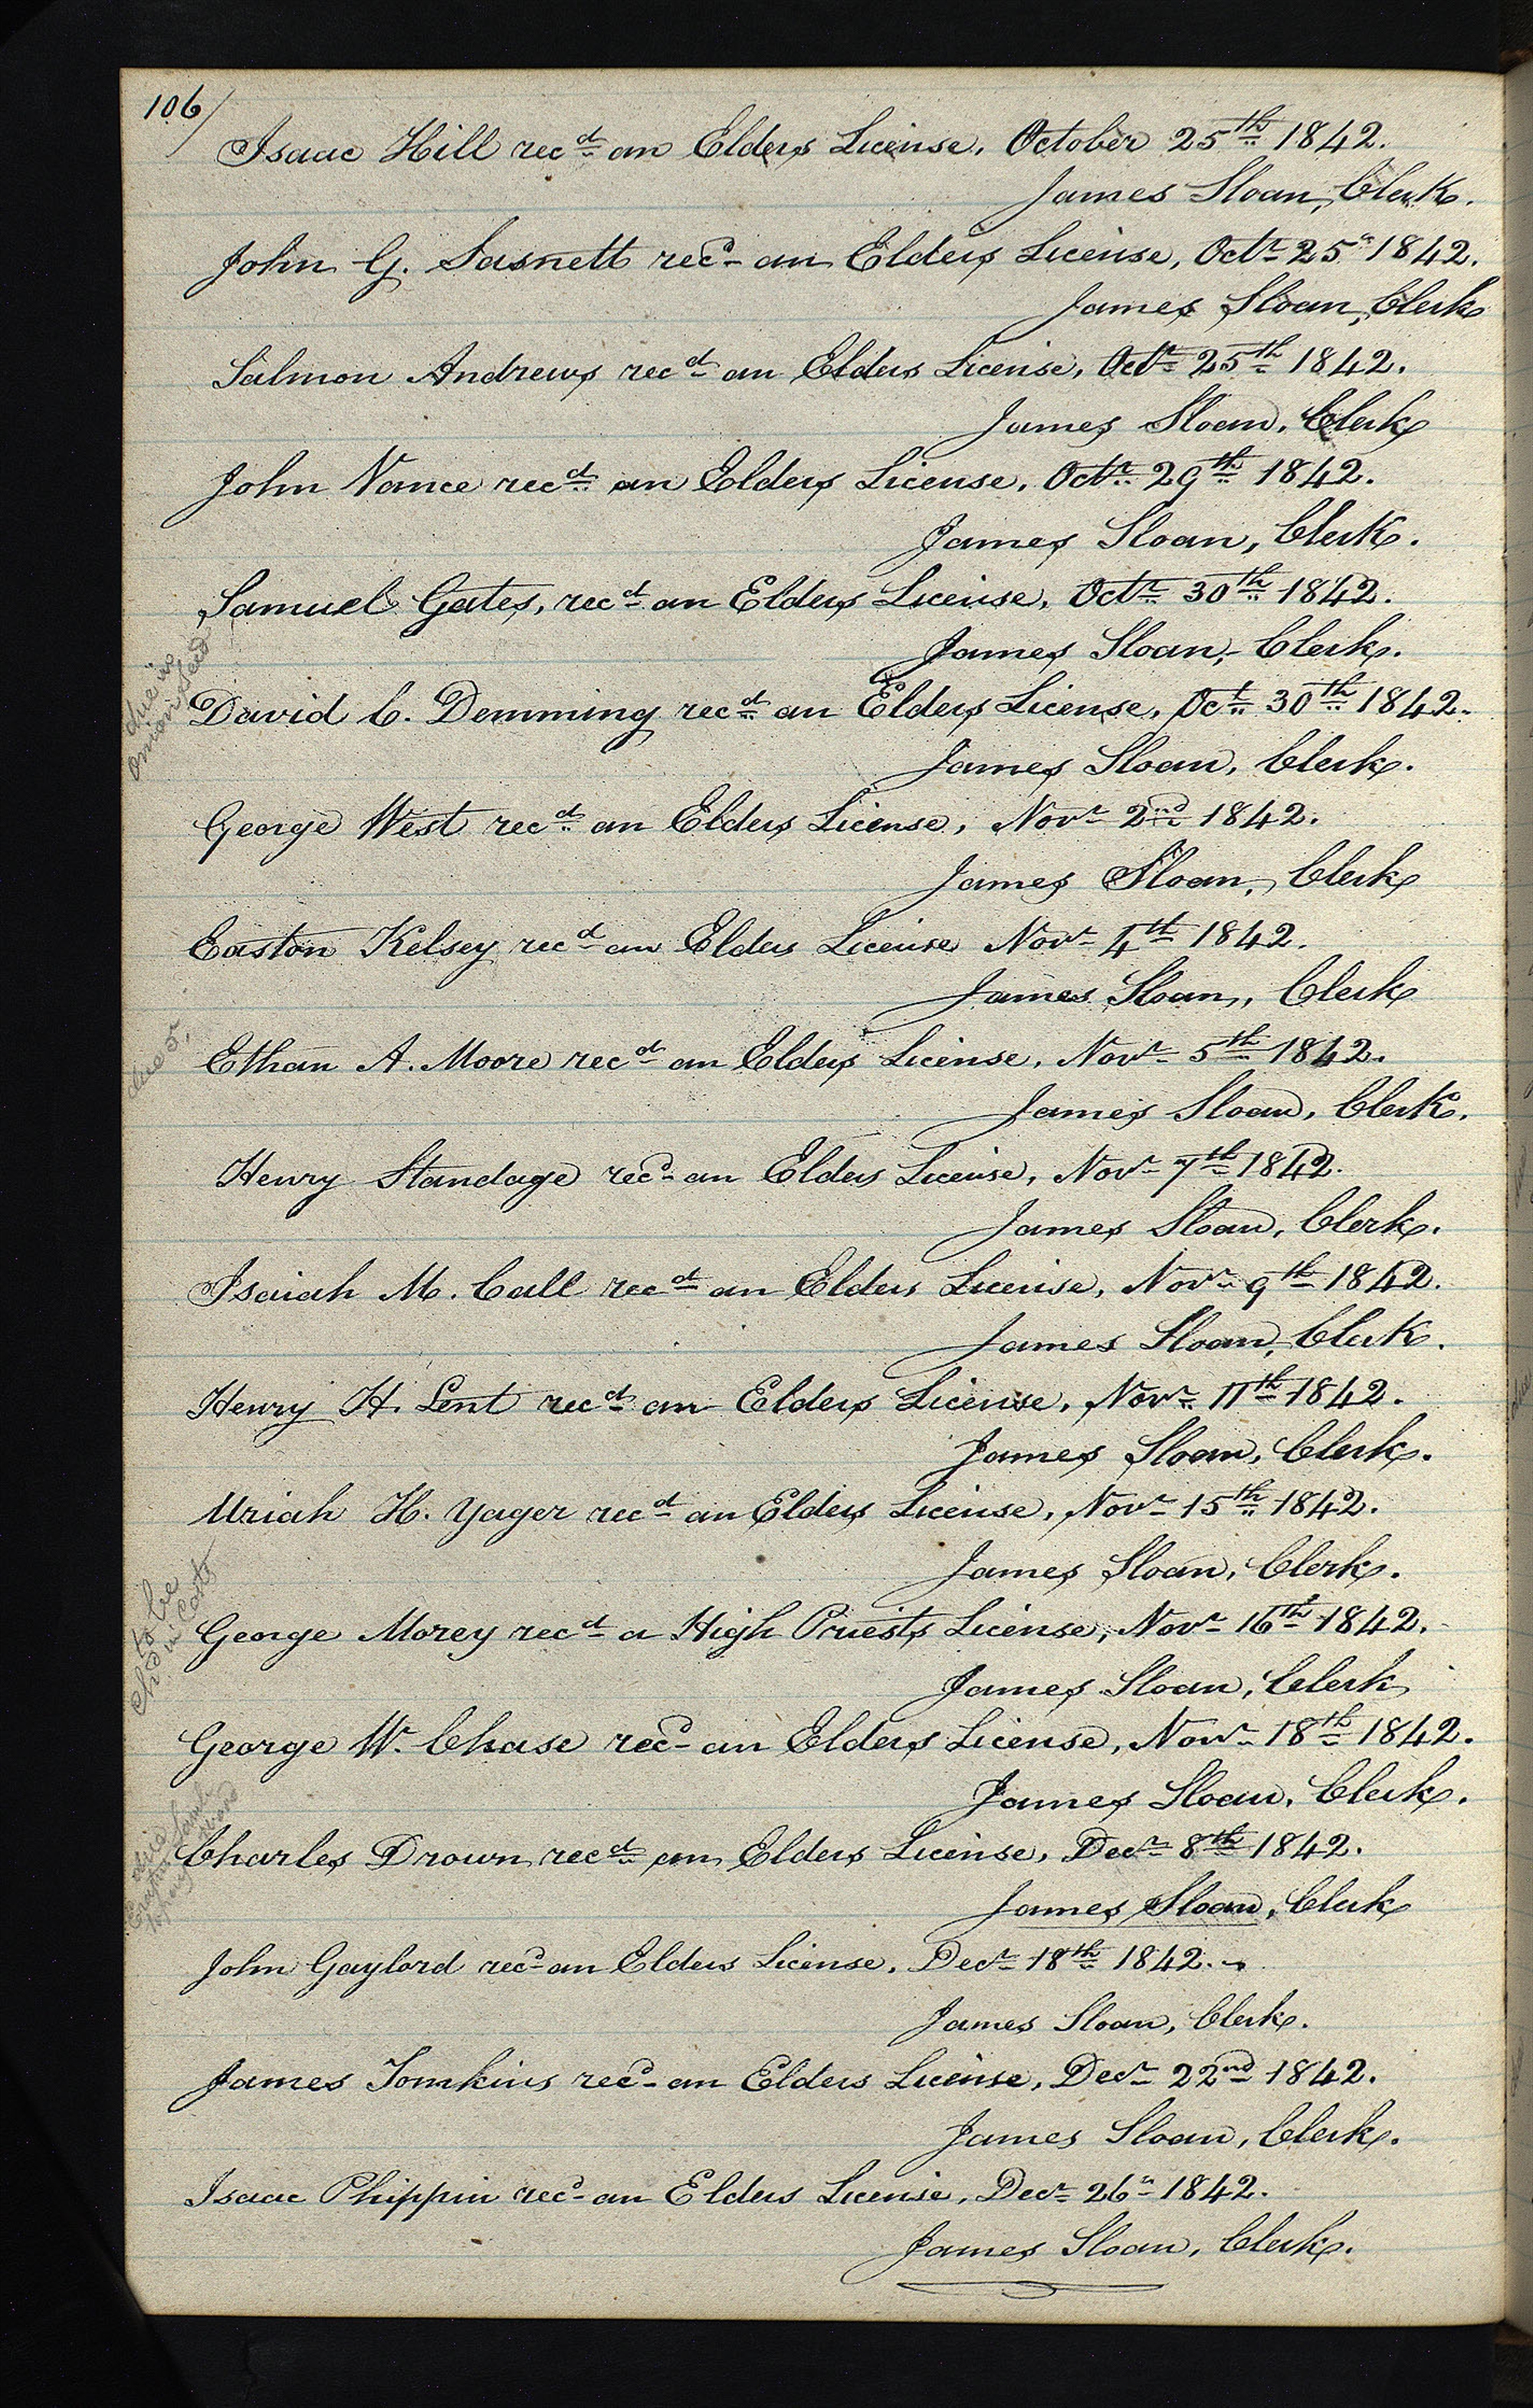 106/
Isaac Hill recd an Elders License, October 25th 1842.
James Sloan, Clerk.
John G. Sasnett recd an Elders License, Octr 25" 1842.
James Sloan, Clerk
Salmon Andrews recd an Elders License, Octr 25th 1842.
James Sloan, Clerk
John Nance recd an Elders License, Octr 29th 1842.
James Sloan, Clerk.
Samuel Gates, recd an Elders License, Octr 30th 1842.
James Sloan, Clerk.
due in
onion seed
David C. Demming recd an Elders License, Oct 30th 1842.
James Sloan, Clerk.
George West recd an Elders License, Novr 2nd 1842.
James Sloan, Clerk
Easton Kelsey recd an Elders License Novr 4th 1842.
James Sloan, Clerk
due
Ethan A. Moore recd an Elders License, Novr 5th 1842.
James Sloan, Clerk.
Henry Standage recd an Elders License, Novr 7th 1842.
James Sloan, Clerk.
Isaiah M. Call recd an Elders License, Novr 9th 1842.
James Sloan, Clerk.
Henry H. Lent recd an Elders License, Novr 11th 1842.
James Sloan, Clerk.
Uriah H. Yager recd an Elders License, Novr 15th 1842.
James Sloan, Clerk.
to be
chd in Costs
George Morey recd a High Priests License, Novr 16th 1842.
James Sloan, Clerk
George W. Chase recd an Elders License, Novr 18th 1842.
James Sloan, Clerk.
due
Charles Drown recd an Elders License, Decr 8th 1842.
James Sloan, Clerk
John Gaylord recd an Elders License, Decr 18th 1842.
James Sloan, Clerk.
James Tomkins recd an Elders License, Decr 22nd 1842.
James Sloan, Clerk.
Isaac Phippin recd an Elders License, Decr 26" 1842.
James Sloan, Clerk.